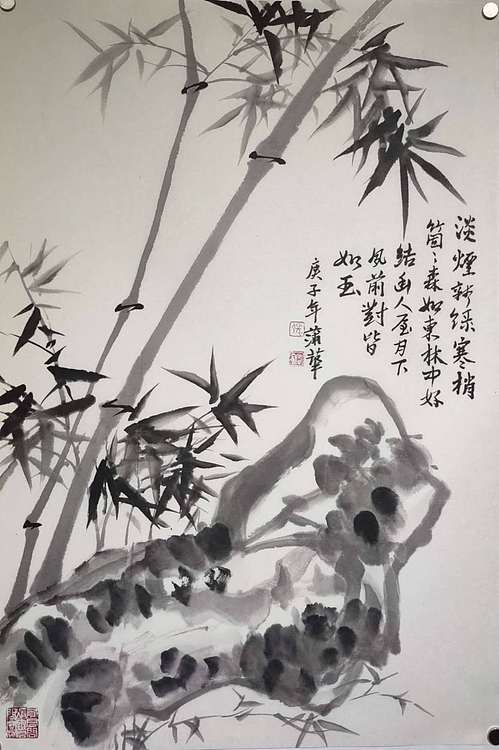 淡煙新綠寒梢
箇〻森如東林中好
結幽人屋月下
風前對皆
如玉
庚子年蒲華